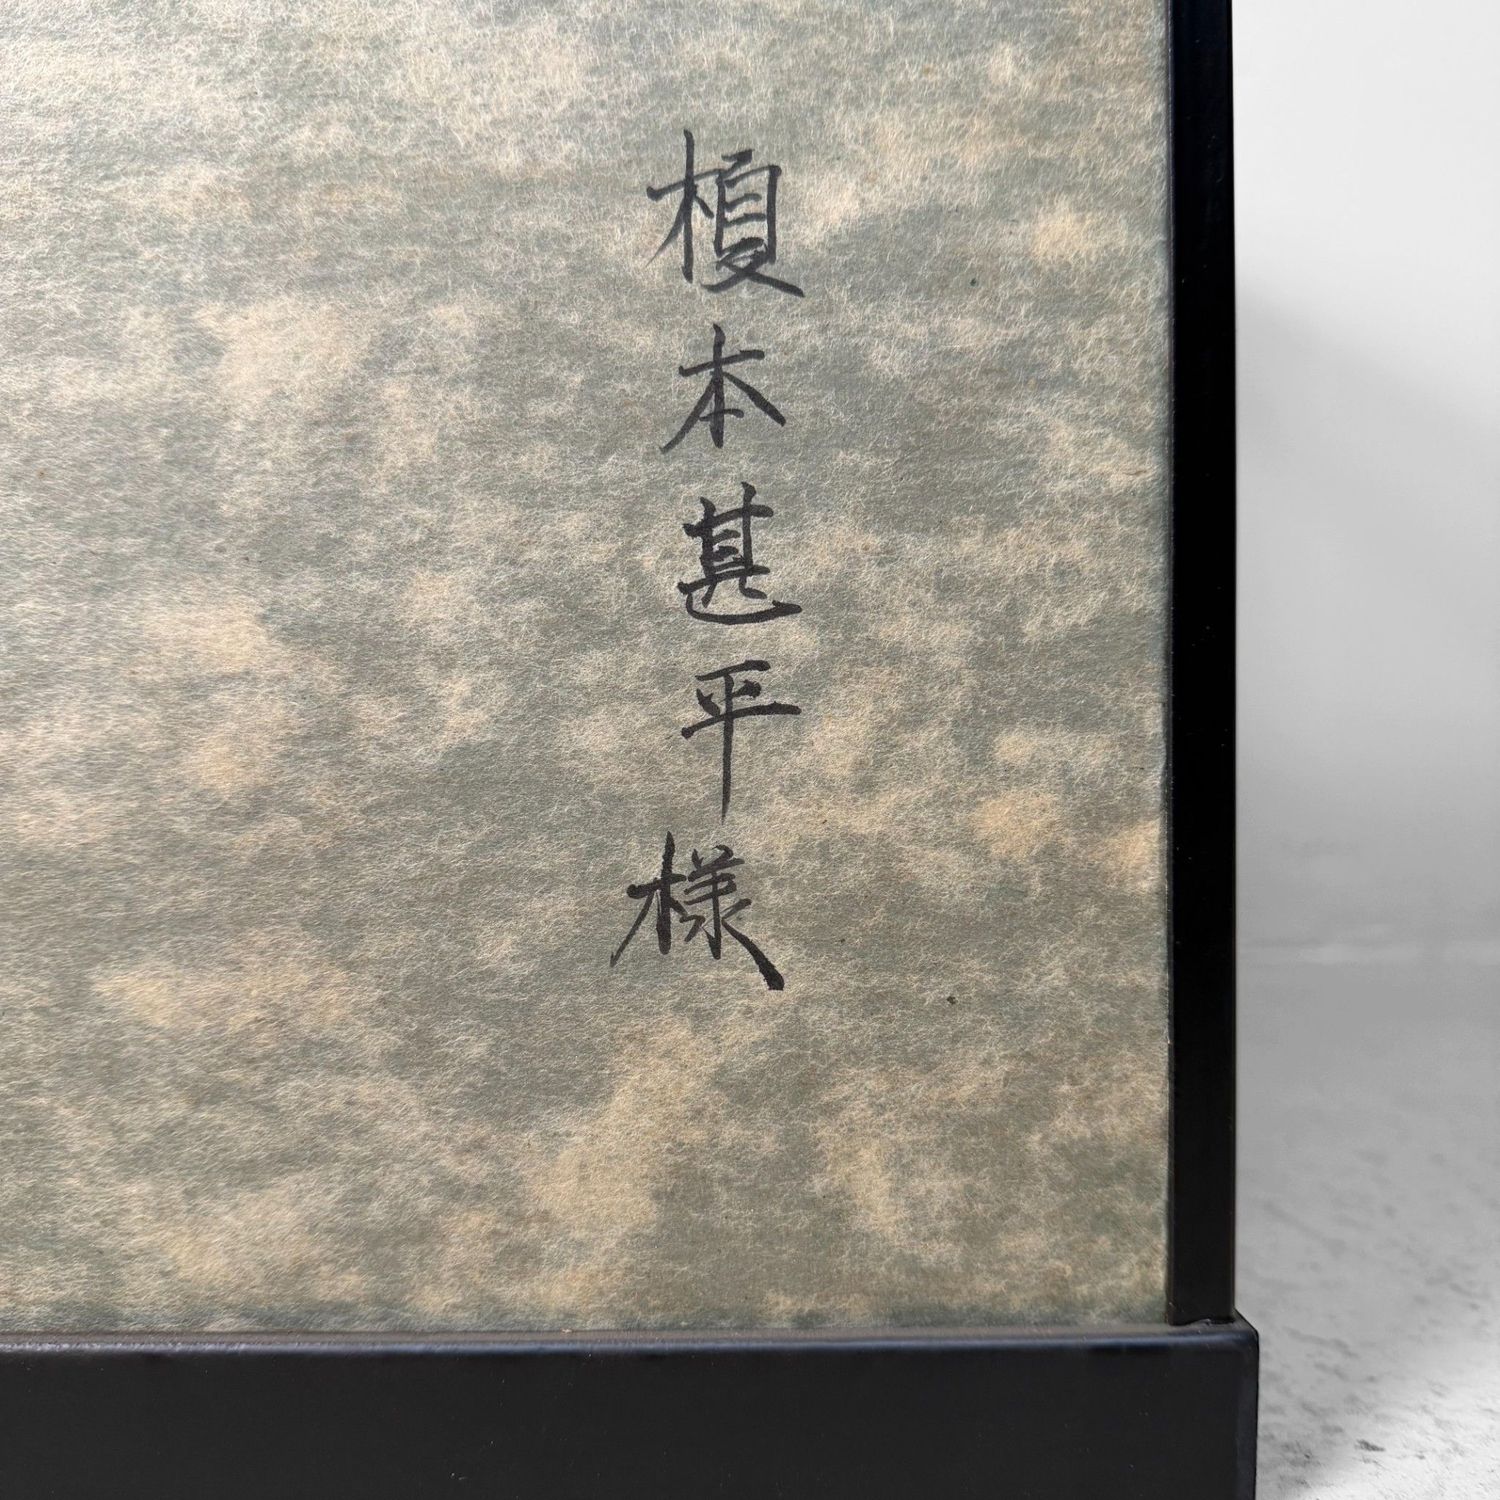 榎本甚平様